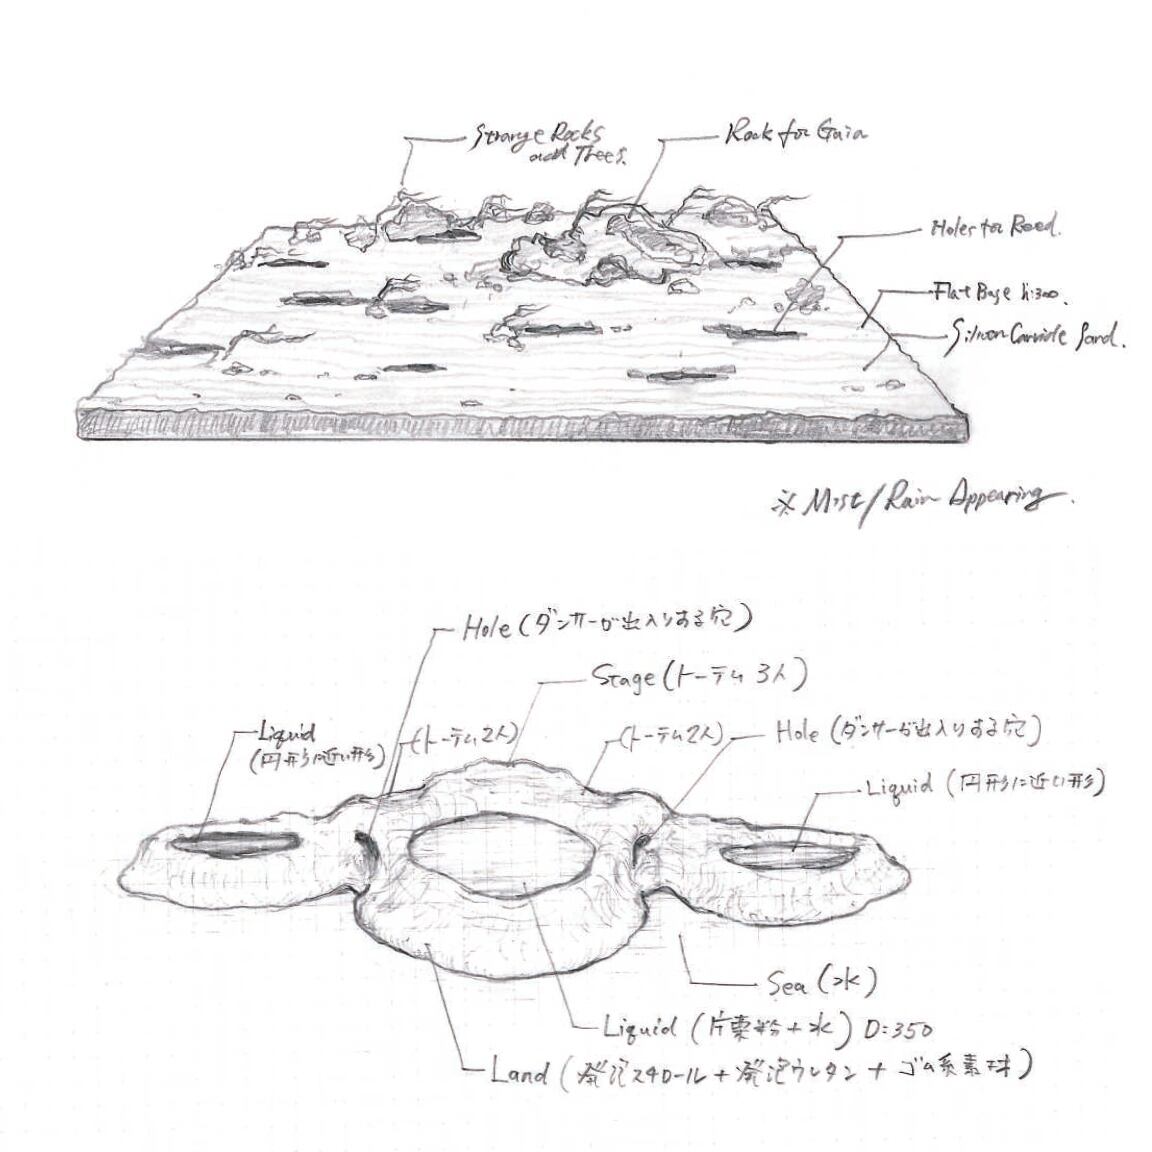 Strange Rocks
and Trees.
Rock for Gaia
Holes for Reed.
Flat Base h:300.
Silicon Carvide Sand.
※ Mist/Rain Appearing.
Hole (ダンサーが出入りする穴)
Stage (トーテム 3人)
Liquid
(円形に近い形)
(トーテム2人)
(トーテム2人)
Hole (ダンサーが出入りする穴)
Liquid (円形に近い形)
Sea (水)
Liquid (片栗粉+水) D=350
Land (発泡スチロール+発泡ウレタン+ゴム系素材)